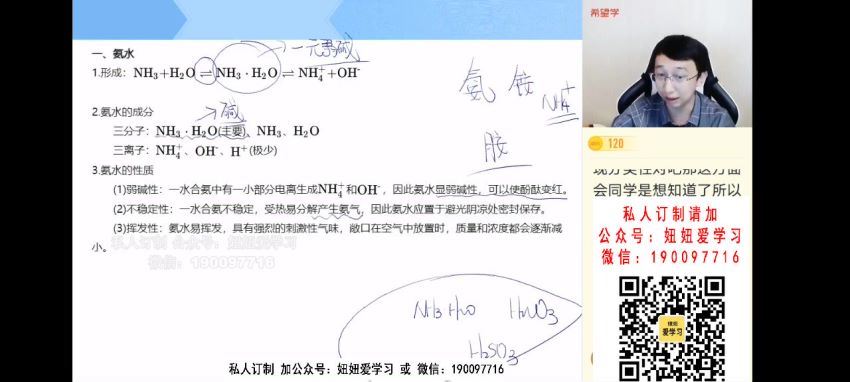 希望学
一、氨水
一元弱碱
1.形成：NH₃+H₂O⇌NH₃·H₂O⇌NH₄⁺+OH⁻
氨 铵 NH₄⁺
胺
2.氨水的成分
碱
三分子：NH₃·H₂O(主要)、NH₃、H₂O
三离子：NH₄⁺、OH⁻、H⁺(极少)
3.氨水的性质
(1)弱碱性：一水合氨中有一小部分电离生成NH₄⁺和OH⁻，因此氨水显弱碱性，可以使酚酞变红。
(2)不稳定性：一水合氨不稳定，受热易分解产生氨气，因此氨水应置于避光阴凉处密封保存。
(3)挥发性：氨水易挥发，具有强烈的刺激性气味，敞口在空气中放置时，质量和浓度都会逐渐减
小。
私人订制 公众号：妞妞爱学习
微信：190097716
NH₃H₂O HNO₃
H₂SO₃
私人订制 加公众号：妞妞爱学习 或 微信：190097716
120
会同学是想知道了所以
私人订制请加
公众号：妞妞爱学习
微信：190097716
妞妞
爱学习